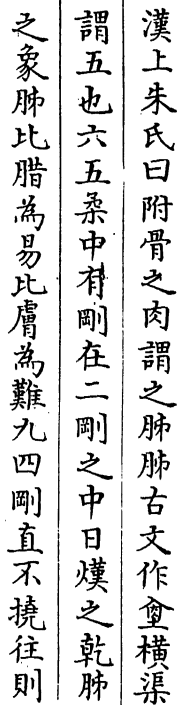 漢上朱氏曰附骨之肉謂之胏胏古文作㒶橫渠
謂五也六五柔中有剛在二剛之中日熯之乾胏
之象胏比腊為易比膚為難九四剛直不撓往則